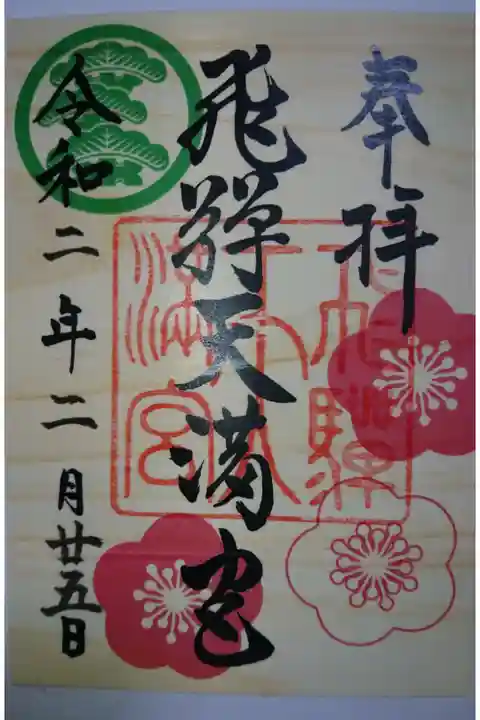 奉拝
飛騨天満宮
令和二年二月廿五日